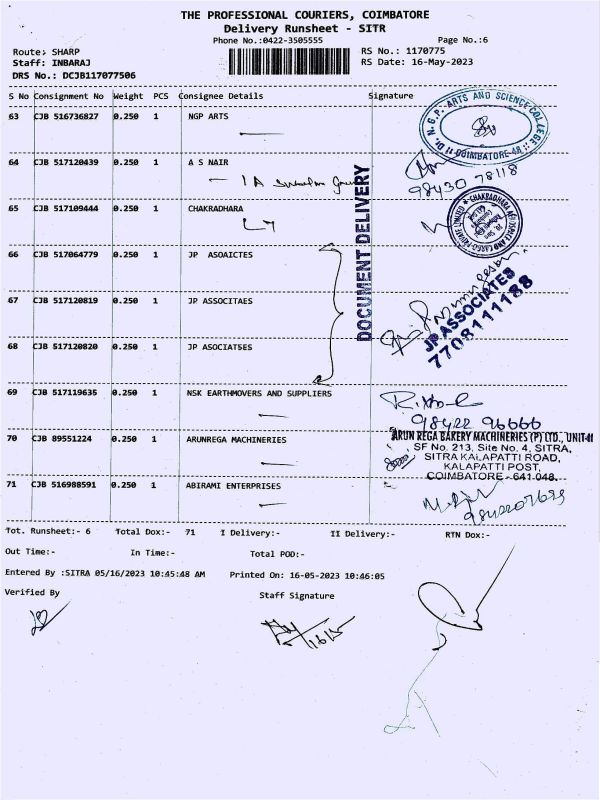 THE PROFESSIONAL COURIERS, COIMBATORE
Delivery Runsheet - SITR
Phone No.:0422-3505555 Page No.:6
Route: SHARP RS No.: 1170775
Staff: INBARAJ RS Date: 16-May-2023
DRS No.: DCJB117077506
S No Consignment No Weight PCS Consignee Details Signature
63 CJB 516736827 0.250 1 NGP ARTS
Dr. N.G.P. ARTS AND SCIENCE COLLEGE
COIMBATORE-48
64 CJB 517120439 0.250 1 A S NAIR
98430 78118
65 CJB 517109444 0.250 1 CHAKRADHARA
DOCUMENT DELIVERY
66 CJB 517064779 0.250 1 JP ASOAICTES
67 CJB 517120819 0.250 1 JP ASSOCITAES
JP ASSOCIATES
7708111188
68 CJB 517120820 0.250 1 JP ASOCIATSES
69 CJB 517119635 0.250 1 NSK EARTHMOVERS AND SUPPLIERS
98422 96666
70 CJB 89551224 0.250 1 ARUNREGA MACHINERIES
ARUN REGA BAKERY MACHINERIES (P) LTD., UNIT-II
SF No. 213, Site No. 4, SITRA,
SITRA KALAPATTI ROAD,
KALAPATTI POST,
COIMBATORE - 641 048.
71 CJB 516988591 0.250 1 ABIRAMI ENTERPRISES
Tot. Runsheet:- 6 Total Dox:- 71 I Delivery:- II Delivery:- RTN Dox:-
Out Time:- In Time:- Total POD:-
Entered By :SITRA 05/16/2023 10:45:48 AM Printed On: 16-05-2023 10:46:05
Verified By Staff Signature